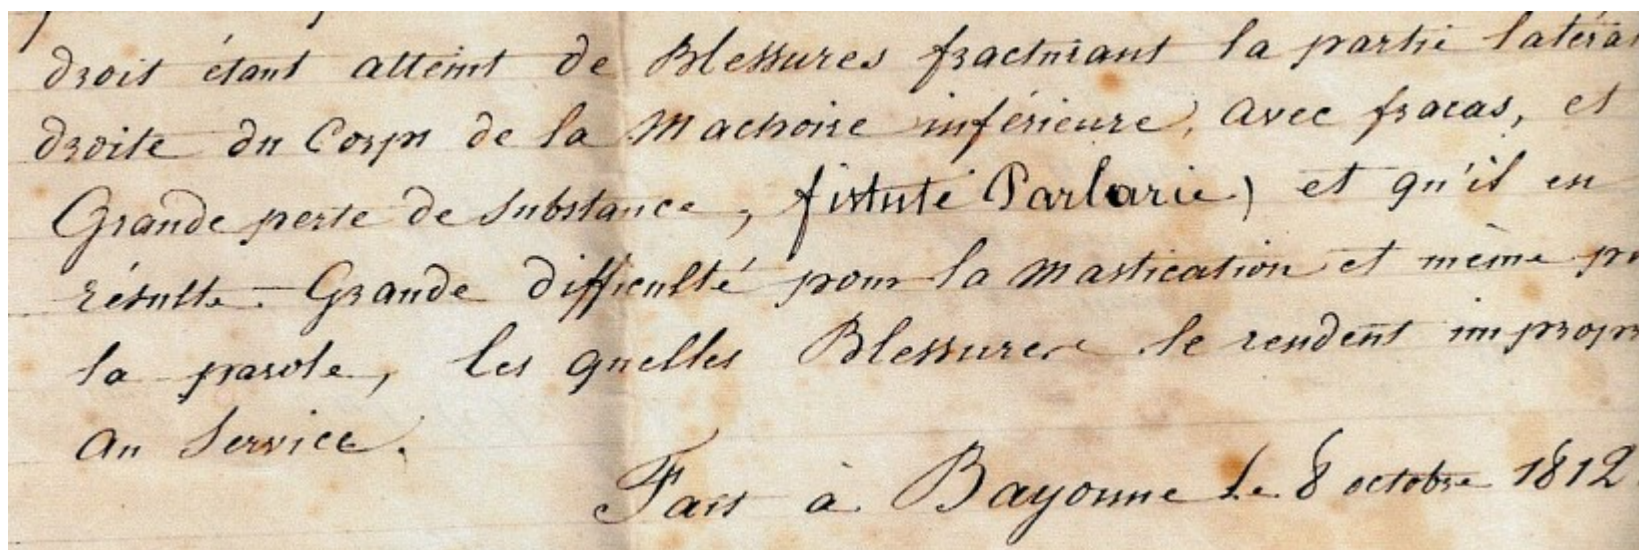 droit étant atteint de Blessures fracturant la partie latéra
droite du Corps de la Machoire inférieure, avec fracas, et
Grande perte de substance, fistule et qu'il en
résulte. Grande difficulté pour la Mastication et même po
la parole, les quelles Blessures le rendent impropr
au Service.
Fait à Bayonne le 8 octobre 1812